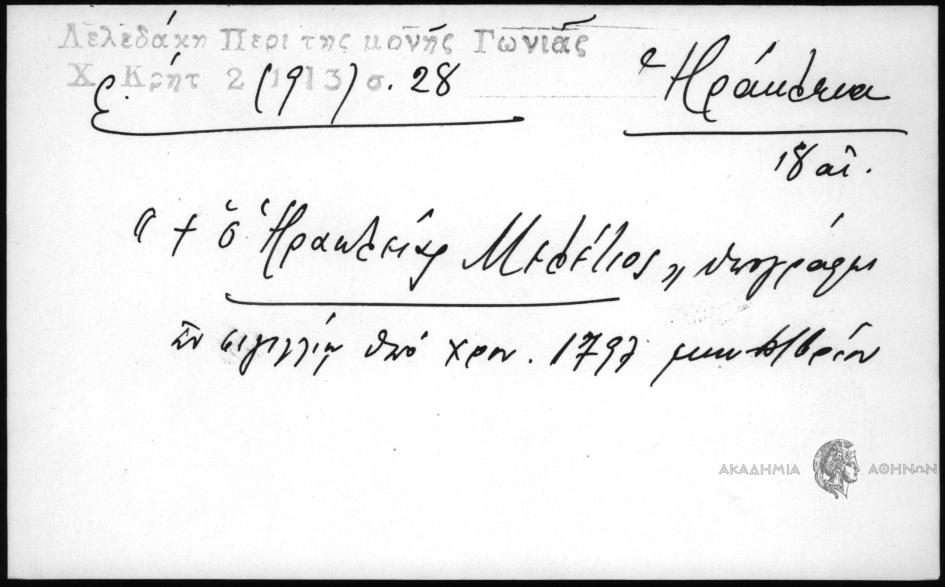 Λελεδάκη Περι της μονής Γωνιάς
Χρ. Κρήτ 2 (1913) σ. 28
Ἡράκλεια
18 αἰ.
" + ὁ Ἡρακλείας Μεθόδιος " ὑπογράφει
ἐν σιγιλλίῳ ὑπό χρον. 1797
ΑΚΑΔΗΜΙΑ ΑΘΗΝΩΝ